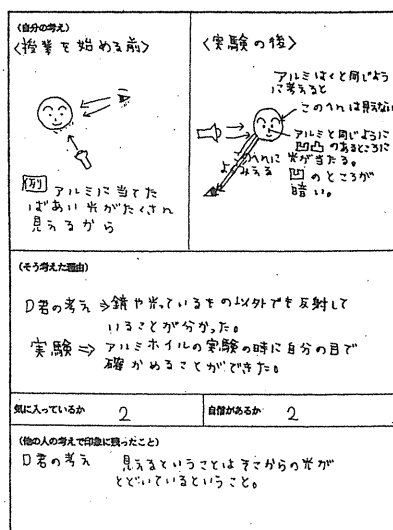 (自分の考え)
〈授業を始める前〉
例 アルミに当てた
ばあい光がたくさん
見えるから
〈実験の後〉
アルミはくと同じよう
に考えると
このへんは見えない
アルミと同じように
凹凸のあるところに
光が当たる。
このへんに
よくみえる
凹のところが
暗い。
(そう考えた理由)
D君の考え⇒鏡や光っているもの以外でも反射して
いることが分かった。
実験⇒アルミホイルの実験の時に自分の目で
確かめることができた。
気に入っているか 2
自信があるか 2
(他の人の考えで印象に残ったこと)
D君の考え 見えるということはそこからの光が
とどいているということ。